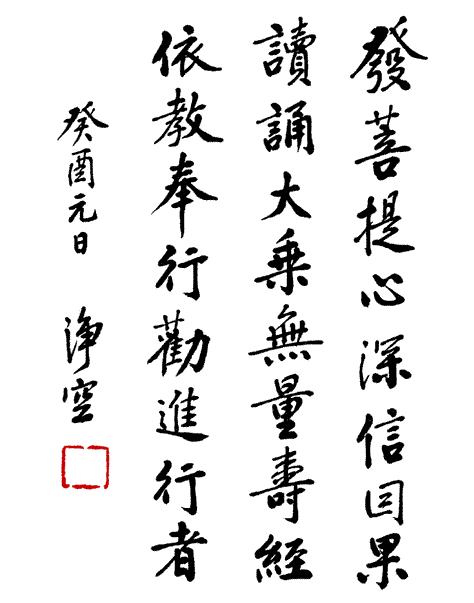 發菩提心深信因果
讀誦大乗無量壽經
依教奉行勸進行者
癸酉元日 淨空